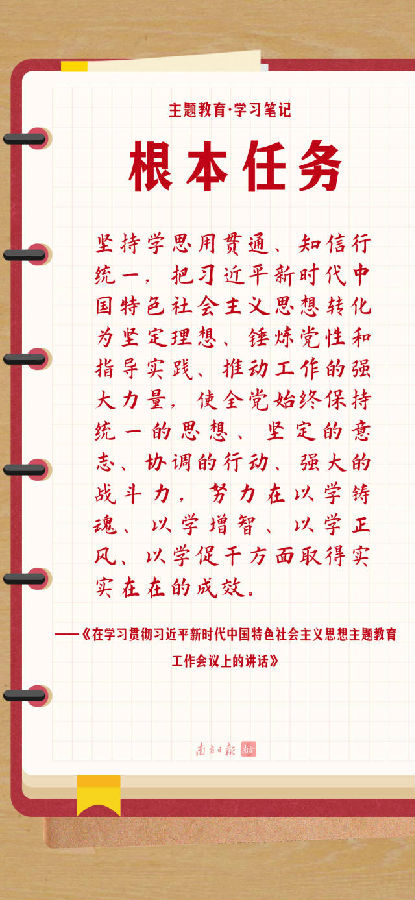 主题教育·学习笔记
根本任务
坚持学思用贯通、知信行
统一，把习近平新时代中
国特色社会主义思想转化
为坚定理想、锤炼党性和
指导实践、推动工作的强
大力量，使全党始终保持
统一的思想、坚定的意
志、协调的行动、强大的
战斗力，努力在以学铸
魂、以学增智、以学正
风、以学促干方面取得实
实在在的成效。
——《在学习贯彻习近平新时代中国特色社会主义思想主题教育
工作会议上的讲话》
南方日报